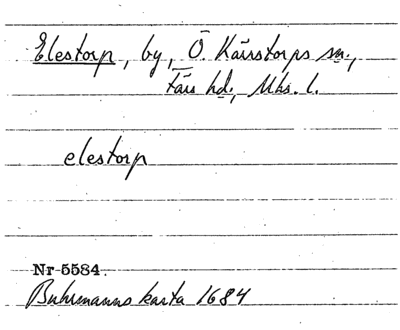 Elestorp, by, Ö. Kärrstorps sn.,
Färs hd., Mhs. l.
elestorp
Nr 5584.
Buhrmanns karta 1684